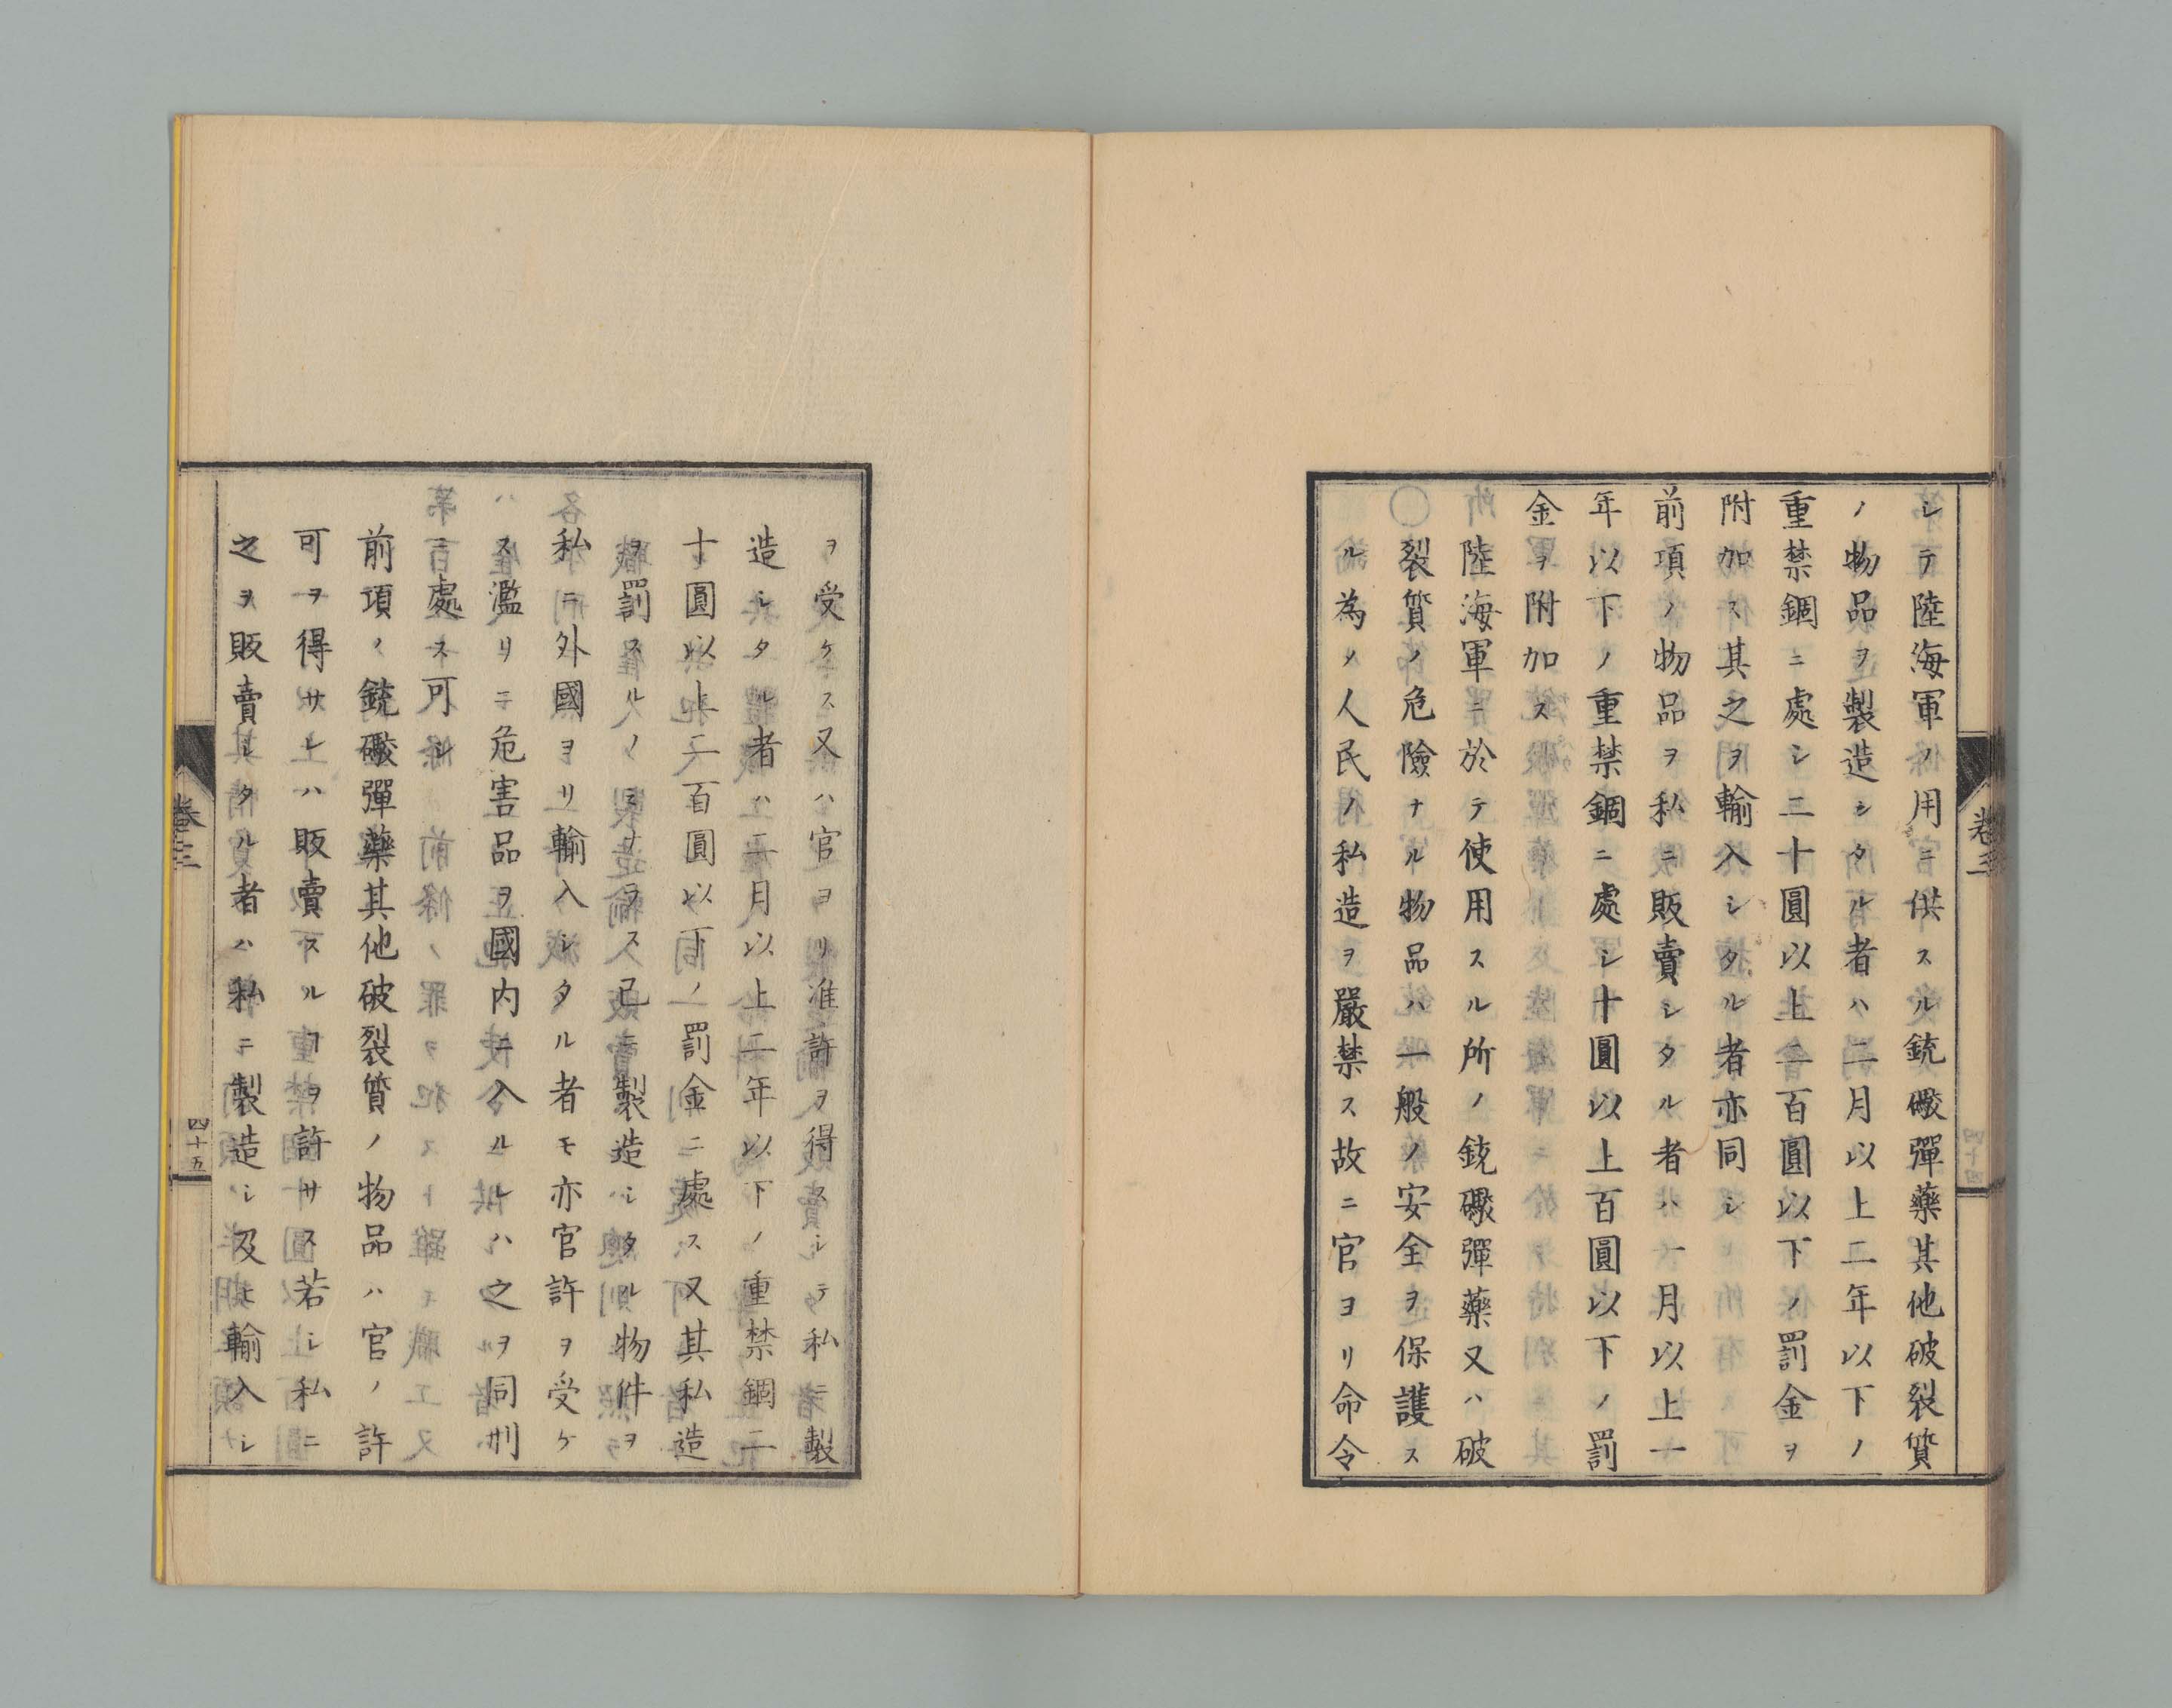 シテ陸海軍ノ用ニ供スル銃礮彈藥其他破裂質
ノ物品ヲ製造シタル者ハ二月以上二年以下ノ
重禁錮ニ處シ二十圓以上二百圓以下ノ罰金ヲ
附加ス其之ヲ輸入シタル者亦同シ
前項ノ物品ヲ私ニ販賣シタル者ハ一月以上一
年以下ノ重禁錮ニ處シ十圓以上百圓以下ノ罰
金ヲ附加ス
陸海軍ニ於テ使用スル所ノ銃礮彈藥又ハ破
裂質ノ危險ナル物品ハ一般ノ安全ヲ保護ス
ル為メ人民ノ私造ヲ嚴禁ス故ニ官ヨリ命令
卷三
ヲ受ケス又ハ官ヨリ准許ヲ得スシテ私ニ製
造シタル者ハ二月以上二年以下ノ重禁錮二
十圓以上二百圓以下ノ罰金ニ處ス又其私造
ヲ罰スルノミナラス已ニ製造シタル物件ヲ
私ニ外國ヨリ輸入シタル者モ亦官許ヲ受ケ
ス濫リニ危害品ヲ國内ニ入ルレハ之ヲ同刑
ニ處ス可シ
前項ノ銃礮彈藥其他破裂質ノ物品ハ官ノ許
可ヲ得サレハ販賣スルヿヲ許サス若シ私ニ
之ヲ販賣シタル者ハ私ニ製造シ及ヒ輸入シ
卷三
四十五